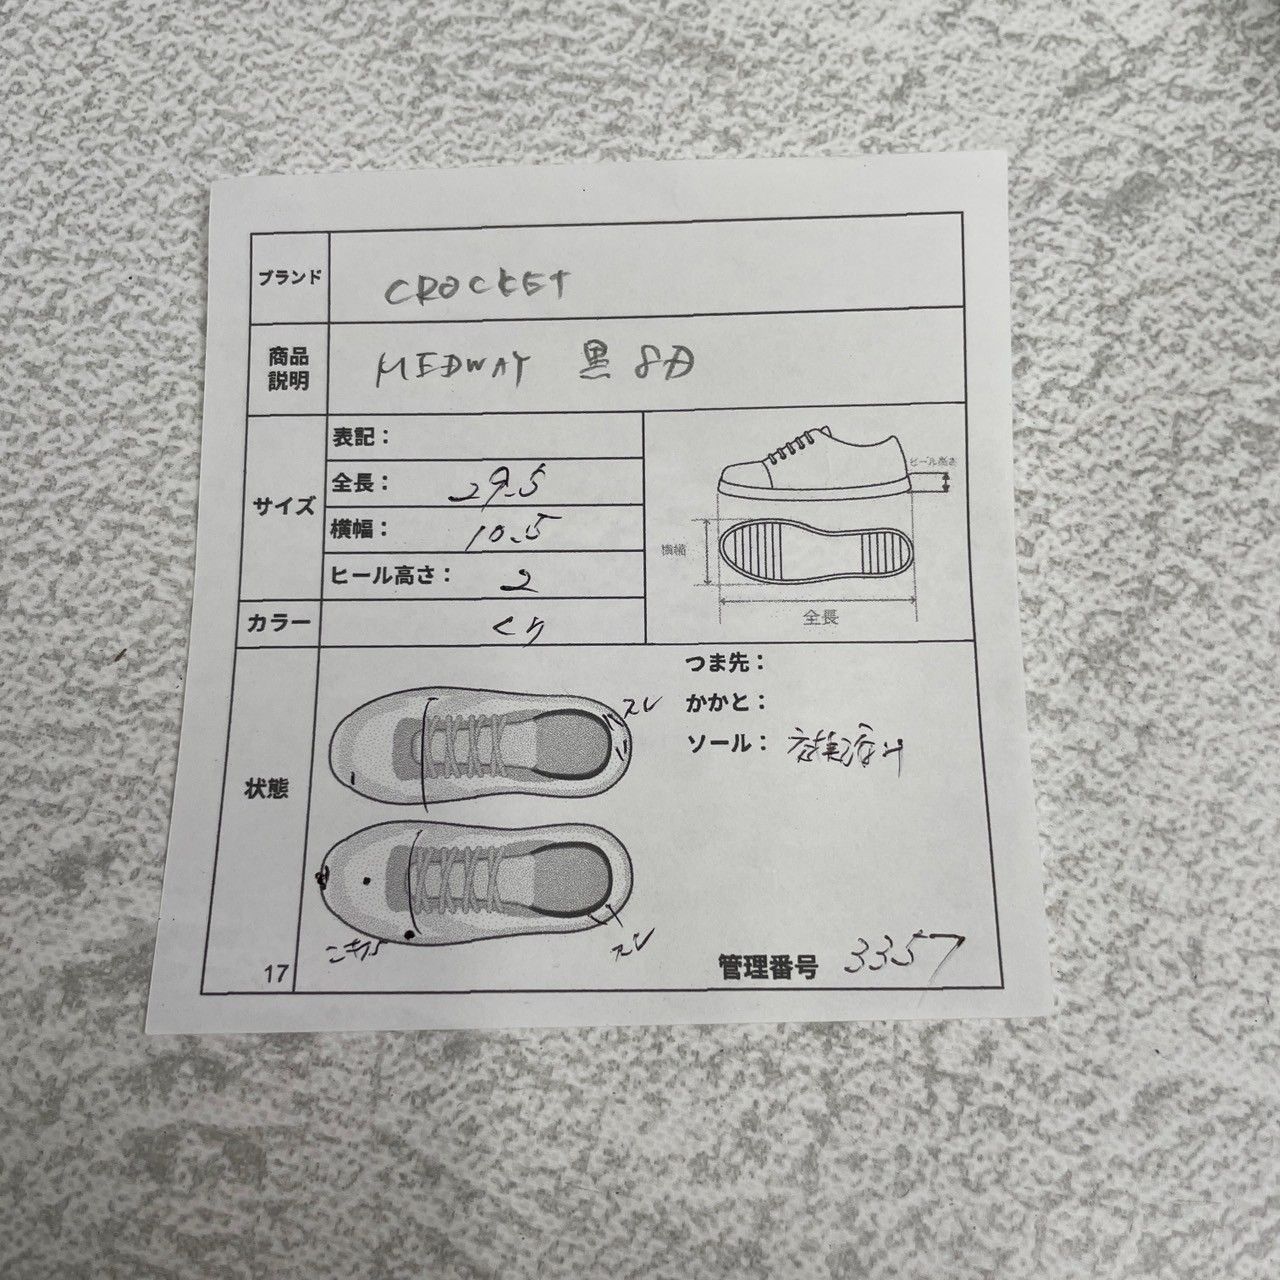 ブランド
CROCKET
商品
説明
MEDWAY 黒 8D
サイズ
表記：
全長： 29.5
横幅： 10.5
ヒール高さ： 2
ヒール高さ
横幅
全長
カラー
くり
状態
つま先：
かかと：
ソール：
スレ
スレ
17
管理番号 3357